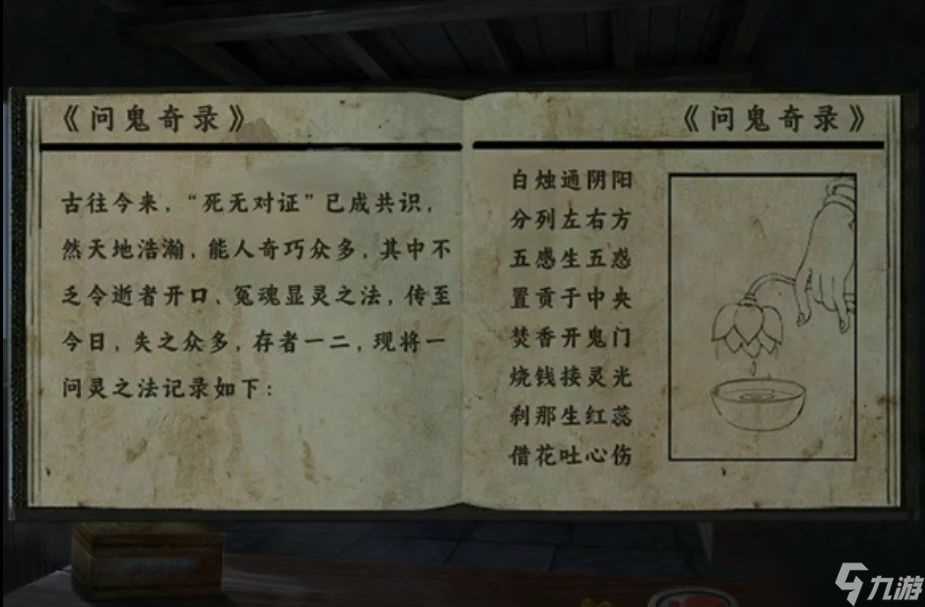 《问鬼奇录》
古往今来，“死无对证”已成共识，
然天地浩瀚，能人奇巧众多，其中不
乏令逝者开口、冤魂显灵之法，传至
今日，失之众多，存者一二，现将一
问灵之法记录如下：
《问鬼奇录》
白烛通阴阳
分列左右方
五感生五惑
置贡于中央
焚香开鬼门
烧钱接灵光
刹那生红蕊
借花吐心伤
九游